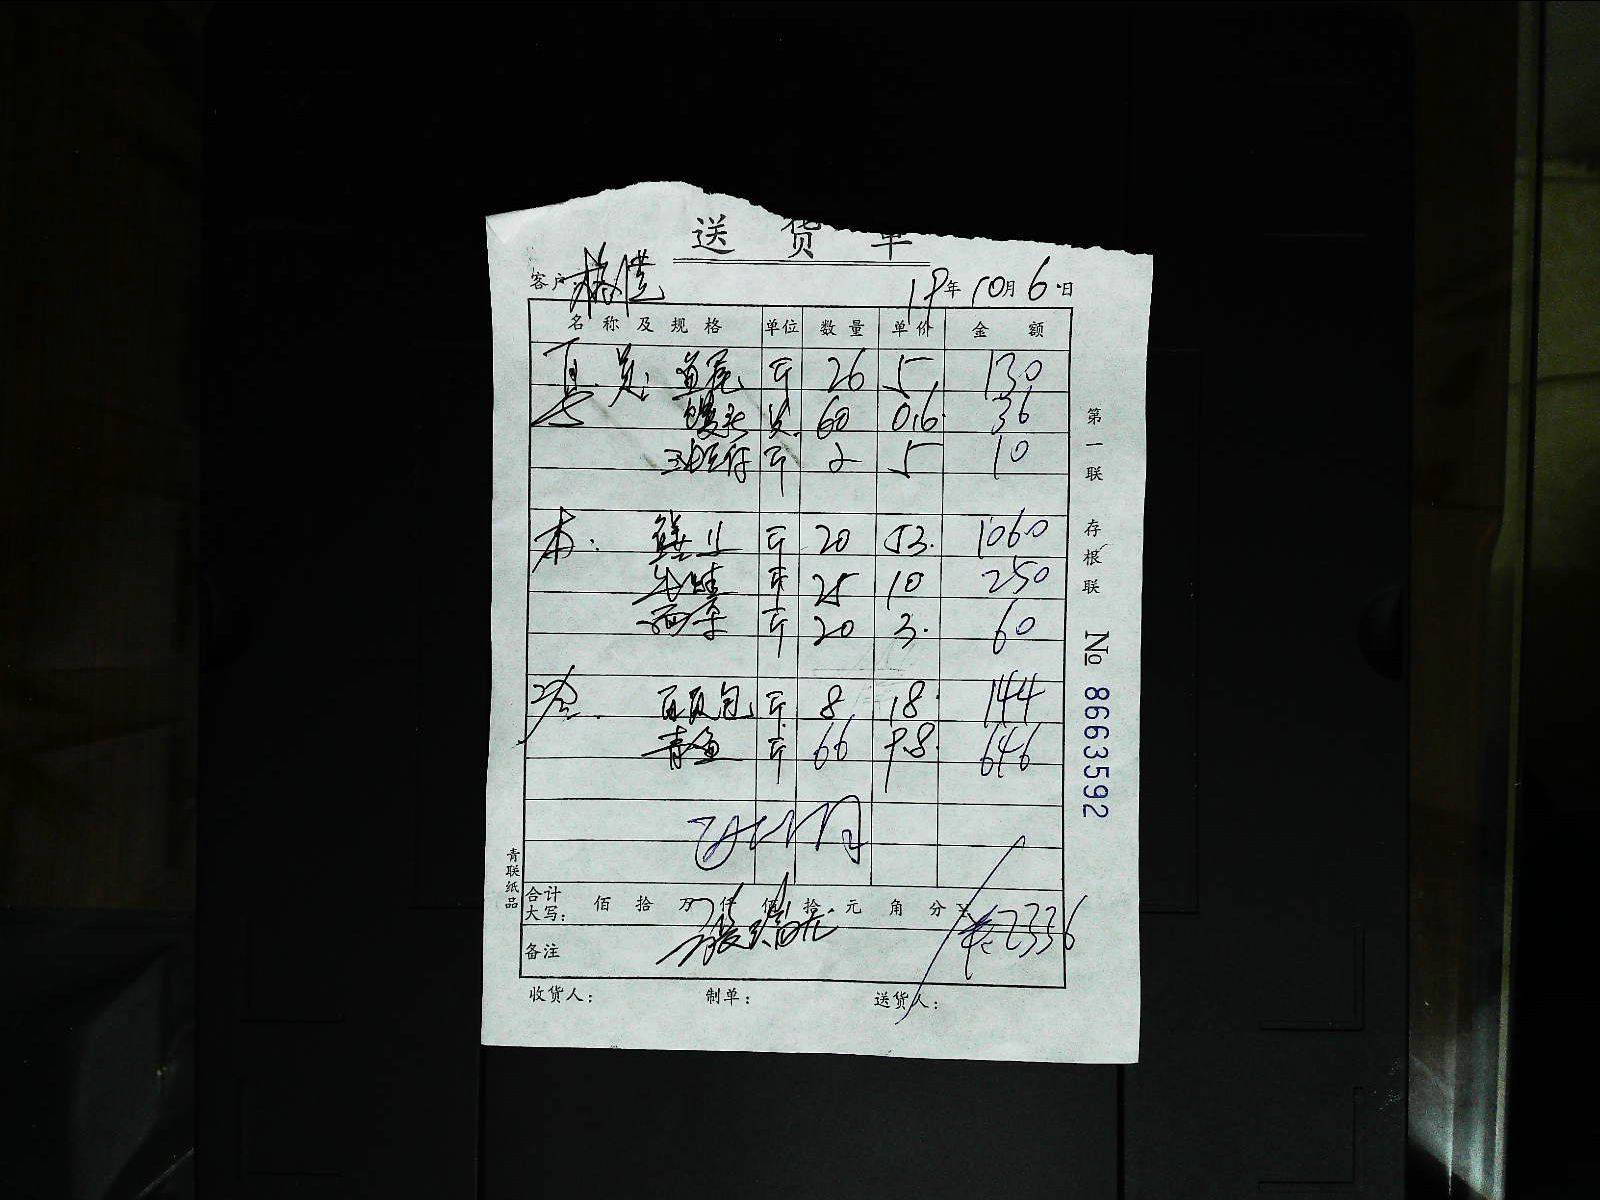 送货单
客户
19年10月6日
名称及规格 单位 数量 单价 金额
鱼尾 斤 26 5 130
馒头 60 0.6 36
斤 2 5 10
本: 斤 20 53. 1060
牛蛙 斤 25 10 250
西芹 斤 20 3. 60
百页包 斤 8 18 144
青鱼 斤 66 9.8 646
合计大写: 佰 拾 万 仟 佰 拾 元 角 分 ¥
2336
备注
收货人: 制单: 送货人:
第一联 存根联
№ 8663592
青联纸品